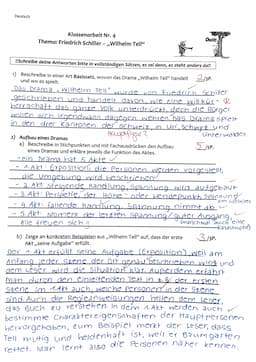 Deutsch
Klassenarbeit Nr. 4
Thema: Friedrich Schiller - „Wilhelm Tell"
!!Schreibe deine Antworten bitte in vollständigen Sätzen, es sei denn, es steht anders da!!
1) Beschreibe in einer Art Basissatz, wovon das Drama „Wilhelm Tell" handelt
und wo es spielt.
Das Drama „Wilhelm Tell" wurde von Friedrich Schiller
geschrieben und handelt davon, wie eine Willkür-
herrschaft das ganze Volk unterdrückt, doch die Bürger
wollen sich irgendwann dagegen wehren. Das Drama spielt
in den drei Kantonen der Schweiz, in Uri, Schwyz und
Unterwalden
Hauptfigur?
2) Aufbau eines Dramas
a) Beschreibe in Stichpunkten und mit Fachausdrücken den Aufbau
eines Dramas und erkläre jeweils die Funktion des Aktes.
-ein Drama hat 5 Akte
- 1 Akt: Exposition, die Personen werden vorgestellt,
die Umgebung wird beschrieben
- 2 Akt: steigende Handlung, Spannung wird aufgebaut
- 3 Akt:
- 4 Akt: fallende Handlung, Spannung nimmt ab
- 5 Akt: Moment der letzten Spannung / guter Ausgang,
alle freuen sich
b) Zeige an konkreten Beispielen aus „Wilhelm Tell", dass der erste
Akt „seine Aufgabe" erfüllt.
Der 1 Akt erfüllt seine Aufgabe (Exposition), weil am
Anfang jeder Szene der Ort genau beschrieben wird und
dem Leser wird die Situation klar. Außerdem erfährt
man durch den einleitenden Text in z.B. der ersten
Szene im 1 Akt auch, welche Personen in der Szene
sind. Auch die Regieanweisungen helfen dem Leser,
das Buch zu verstehen. In dem 1 Akt werden auch
bestimme Charaktereigenschaften der Hauptpersonen
hervorgehoben, zum Beispiel merkt der Leser, dass
Tell mutig und heldenhaft ist, weil er Baumgarten
rettet. Man lernt also die Personen näher kennen.